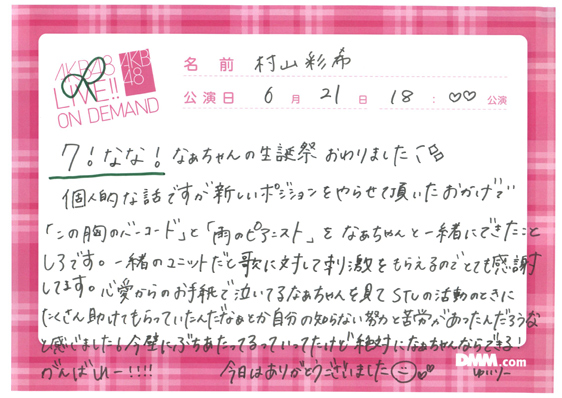 AKB48
LIVE!!
ON DEMAND
AKB
48
名前 村山彩希
公演日 6月21日 18:♡♡公演
7!なな!なぁちゃんの生誕祭おわりました
個人的な話ですが新しいポジションをやらせて頂いたおかげで
「この胸のバーコード」と「雨のピアニスト」をなぁちゃんと一緒にできたこと
しろです。一緒のユニットだと歌に対して刺激をもらえるのでとても感謝
してます。心愛からのお手紙で泣いてるなぁちゃんを見てSTUの活動のときに
たくさん助けてもらっていたんだなぁとか自分の知らない努力と苦労があったんだろうな
と感じました!今壁にぶちあたってるっていってたけど絶対になぁちゃんならできる!
がんばれー!!!! 今日はありがとうございました♡♡ ゆいりー
DMM.com